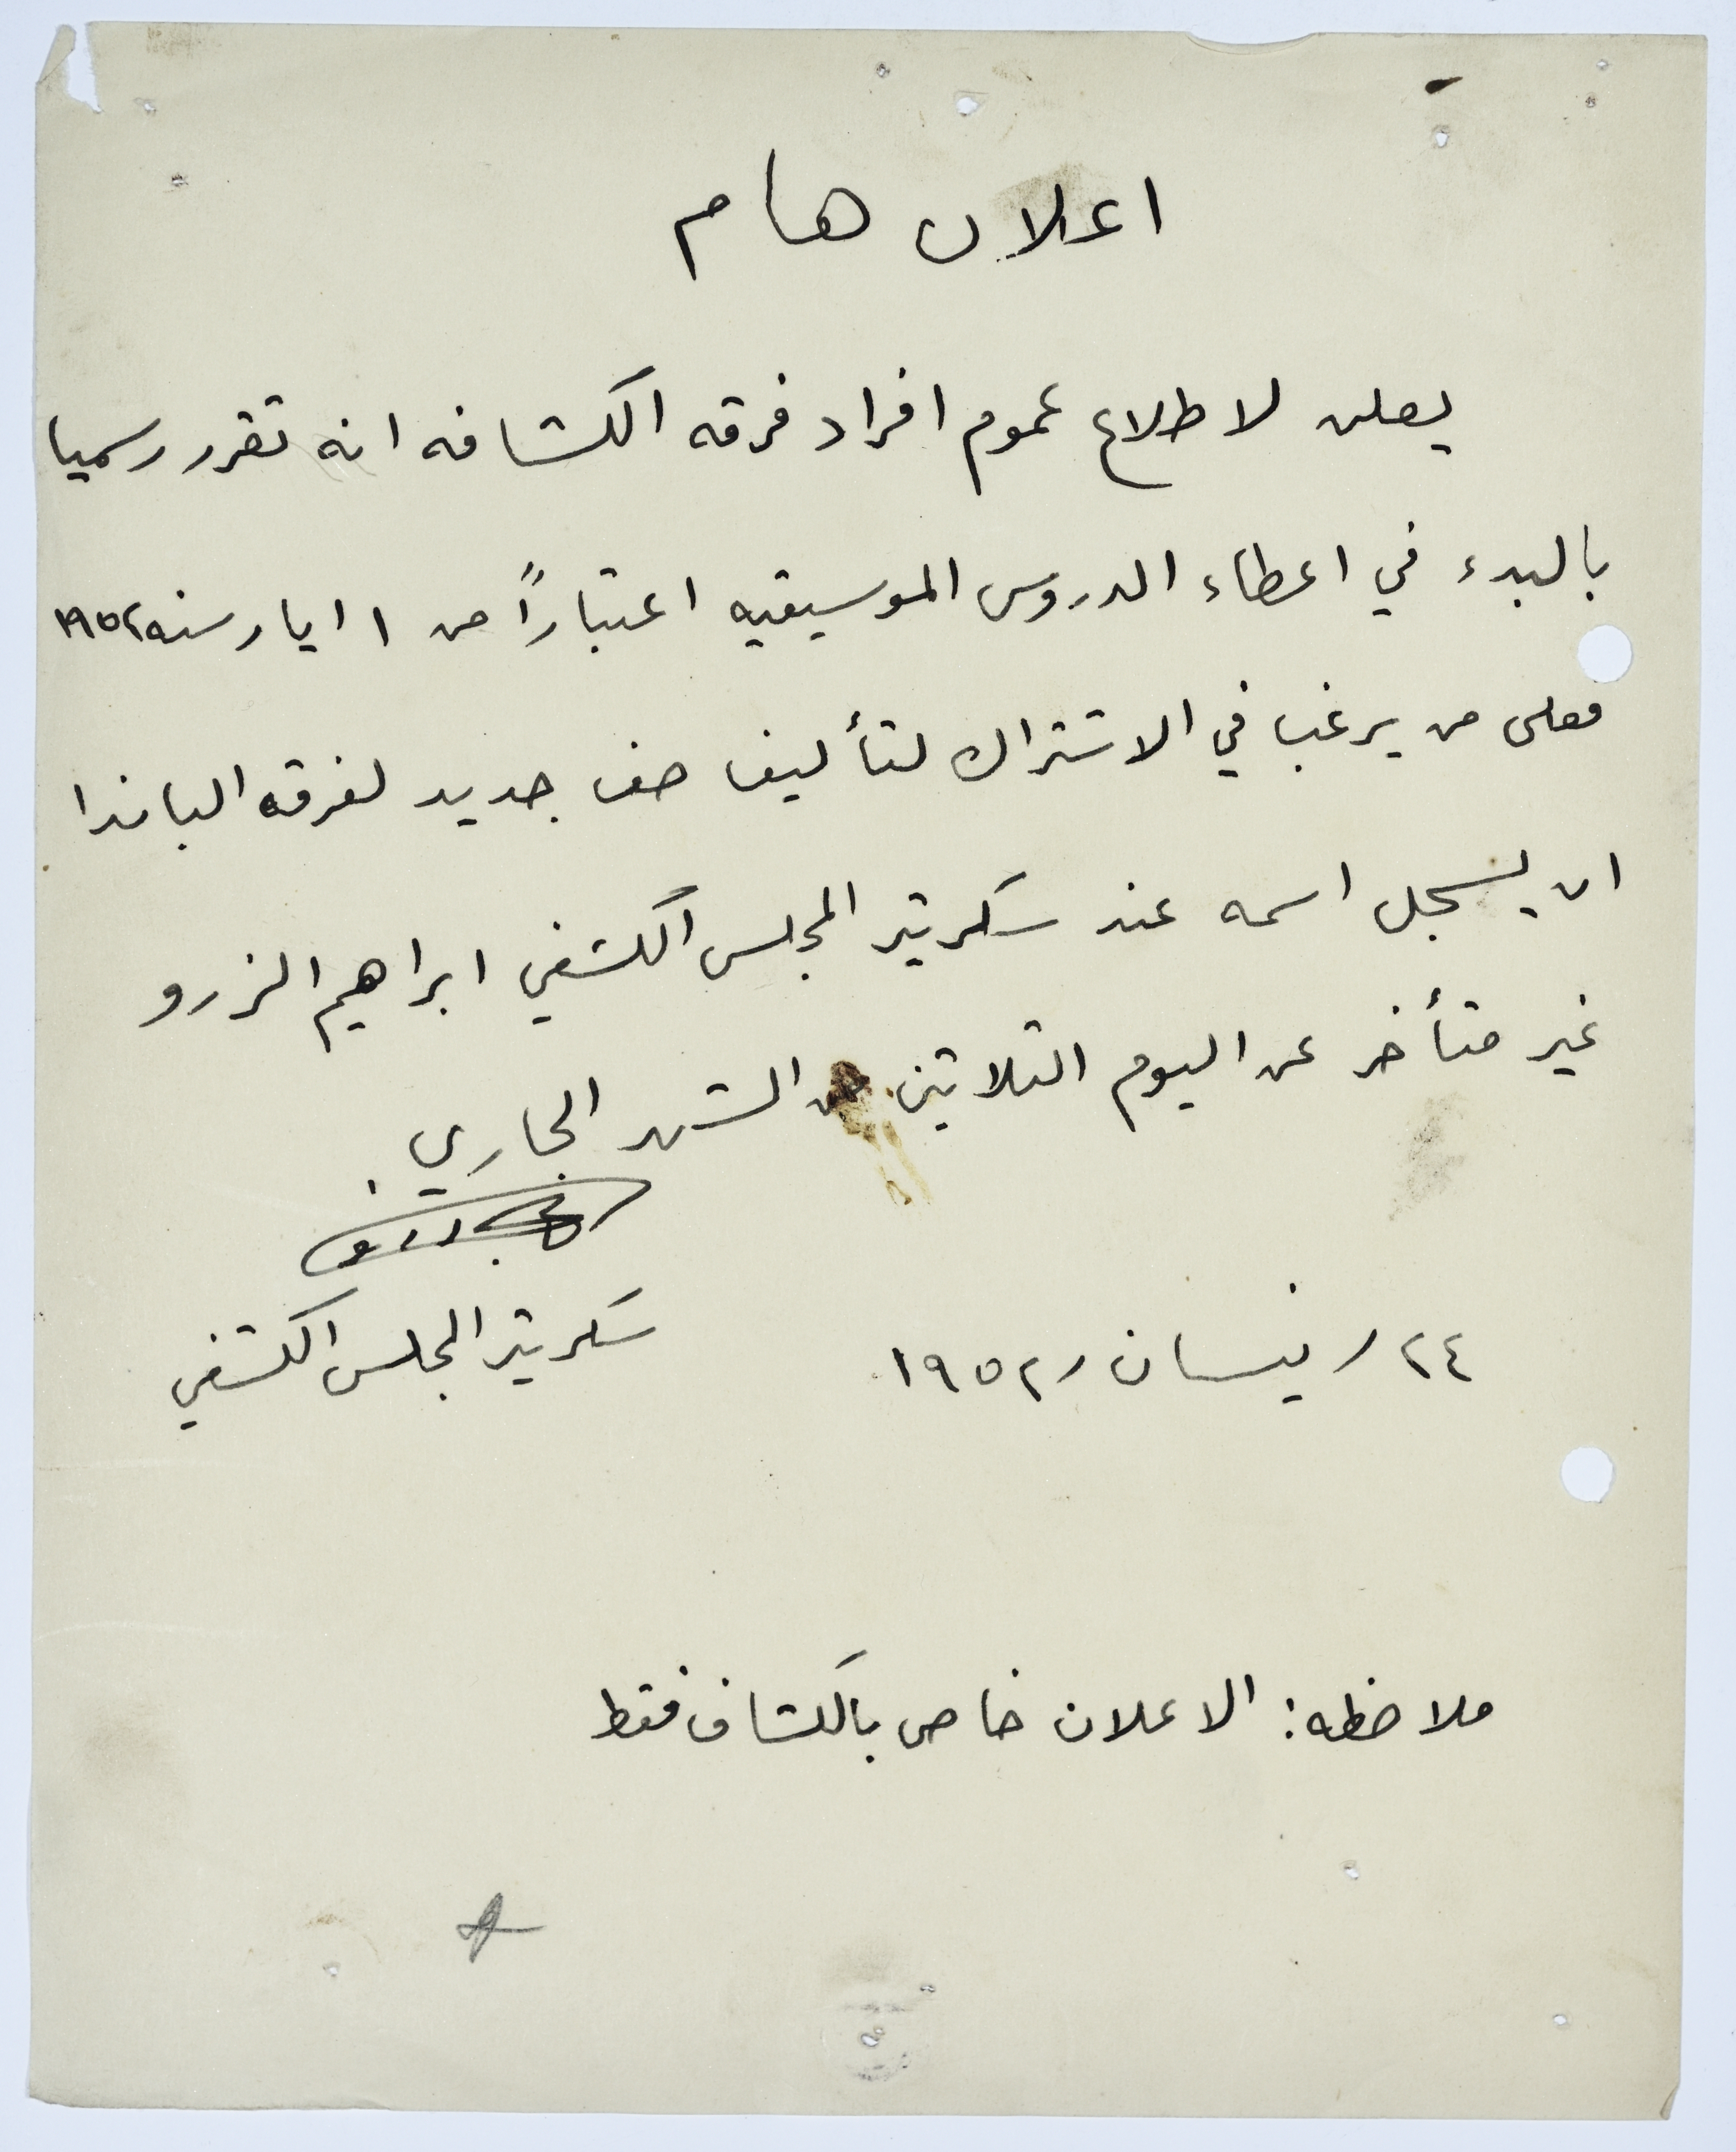 اعلان هام
يعلن لاطلاع عموم افراد فرقه الكشافه انه تقرر رسميا
بالبدء في اعطاء الدروس الموسيقيه اعتباراً من ١ ايار سنه ١٩٥٢
فعلى من يرغب في الاشتراك لتأليف صف جديد لفرقه الباندا
ان يسجل اسمه عند سكريتر المجلس الكشفي ابراهيم الزرو
غير متأخر عن اليوم الثلاثين من الشهر الجاري.
سكريتر المجلس الكشفي
٢٤ / نيسان / ١٩٥٢
ملاحظه: الاعلان خاص بالكشاف فقط